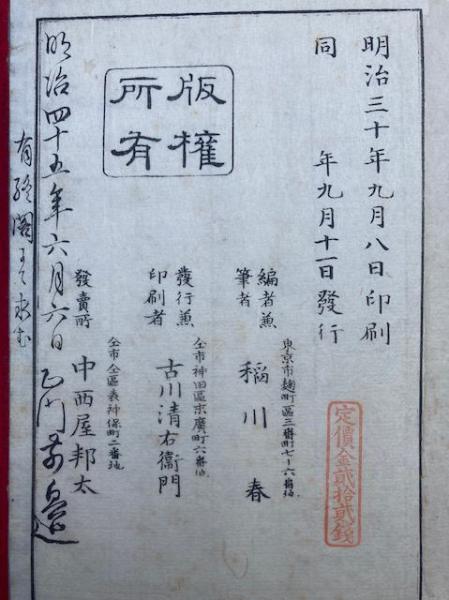 明治三十年九月八日印刷
同 年九月十一日發行
定價金貳拾貳錢
版權
所有
東京市麹町區三番町七十六番地
編者兼
筆者
稲川 春
仝市神田區末廣町六番地
發行兼
印刷者
古川清右衞門
仝市仝區表神保町二番地
發賣所
中西屋邦太
明治四十五年六月六日
有 閣